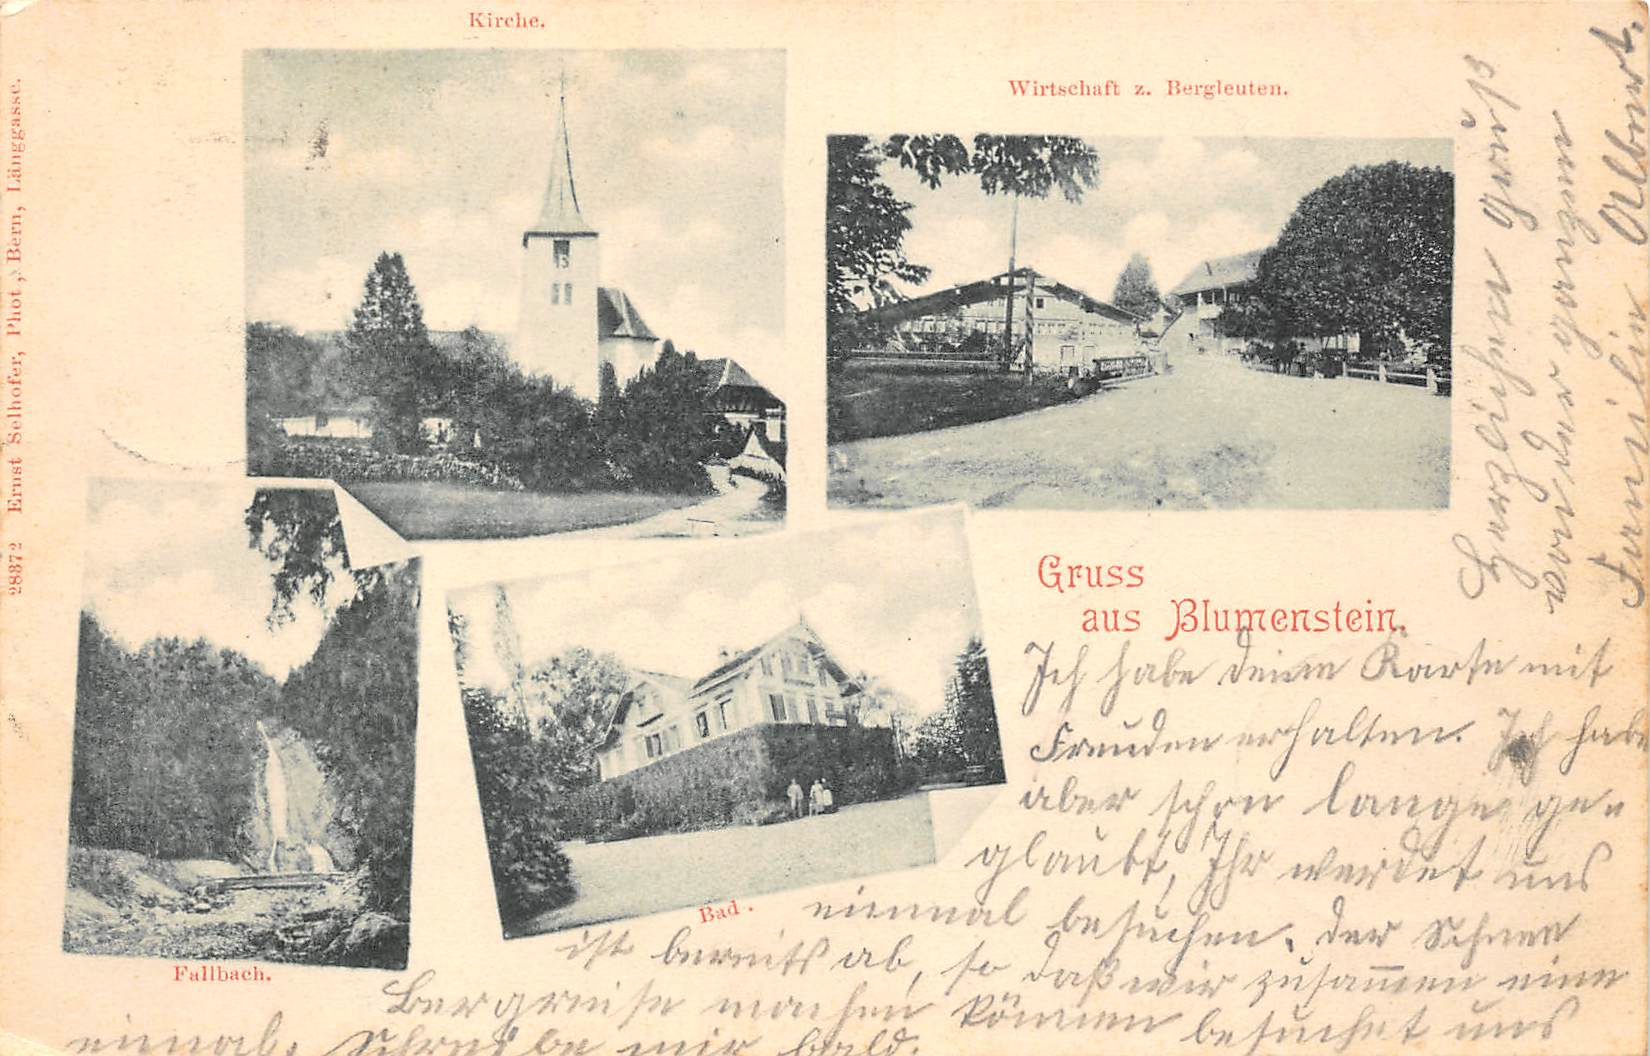 Kirche.
Wirtschaft z. Bergleuten.
28872 Ernst Selhofer, Phot., Bern, Länggasse.
Gruss
aus Blumenstein.
Fallbach.
Bad.
Ich habe deine Karte mit
Freuden erhalten. Ich habe
aber schon lange ge-
glaubt, Ihr werdet uns
einmal besuchen. Der Schnee
ist bereits ab, so daß wir zusammen eine
Bergreise machen können besuchet uns
einmal. Schreibe mir bald.
Herzlicher Gruß
von der ganzen
Familie